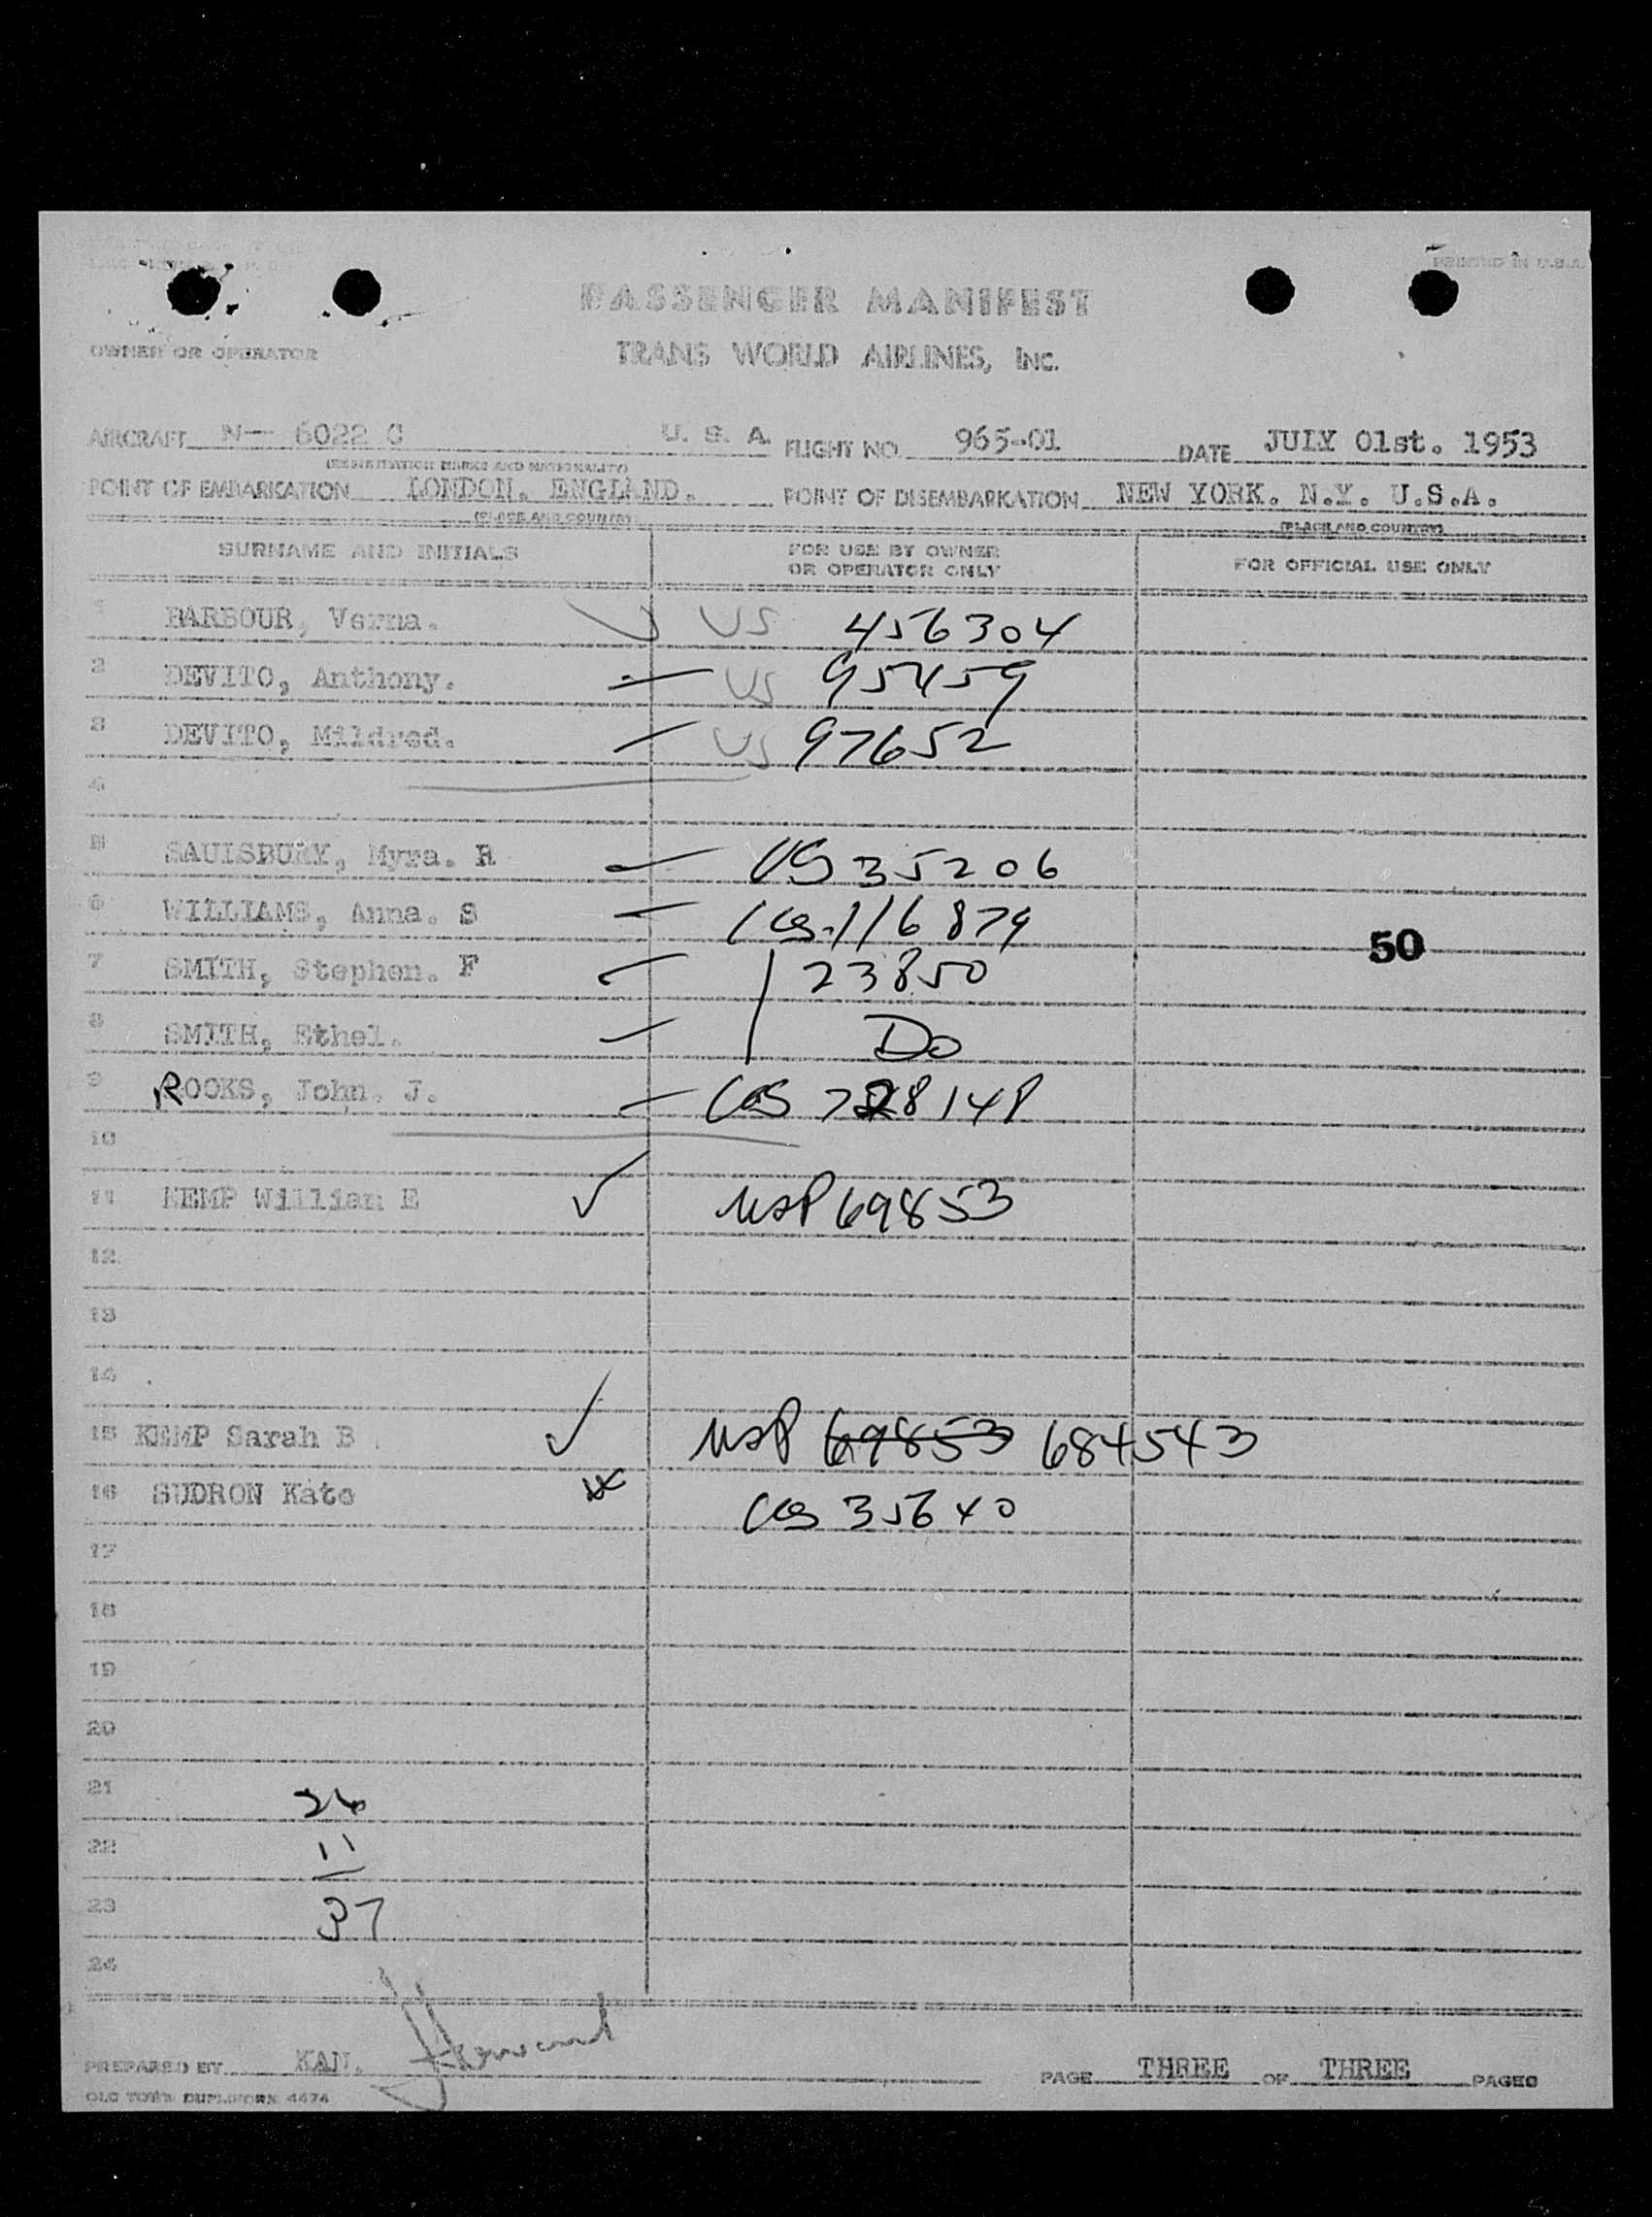 PRINTED IN U.S.A.
PASSENGER MANIFEST
OWNER OR OPERATOR TRANS WORLD AIRLINES, INC.
AIRCRAFT N- 6022 C U. S. A. FLIGHT NO. 965-01 DATE JULY 01st. 1953
(REGISTRATION MARKS AND NATIONALITY)
POINT OF EMBARKATION LONDON. ENGLAND. POINT OF DISEMBARKATION NEW YORK. N.Y. U.S.A.
(PLACE AND COUNTRY) (PLACE AND COUNTRY)
SURNAME AND INITIALS FOR USE BY OWNER OR OPERATOR ONLY FOR OFFICIAL USE ONLY
1 BARBOUR, Verna. US 456304
2 DEVITO, Anthony. US 95459
3 DEVITO, Mildred. US 97652
4
5 SAUISBURY, Myra. R US 35206
6 WILLIAMS, Anna. S US 116879
50
7 SMITH, Stephen. F 23850
8 SMITH, Ethel. Do
9 ROOKS, John. J. US 728148
10
11 KEMP William E USP 69853
12
13
14
15 KEMP Sarah B USP 69853 684543
16 SUDRON Kate US 35640
17
18
19
20
21 26
22 11
23 37
24
PREPARED BY KAN. PAGE THREE OF THREE PAGES
OLD TOWN DUPLIFORM 4474